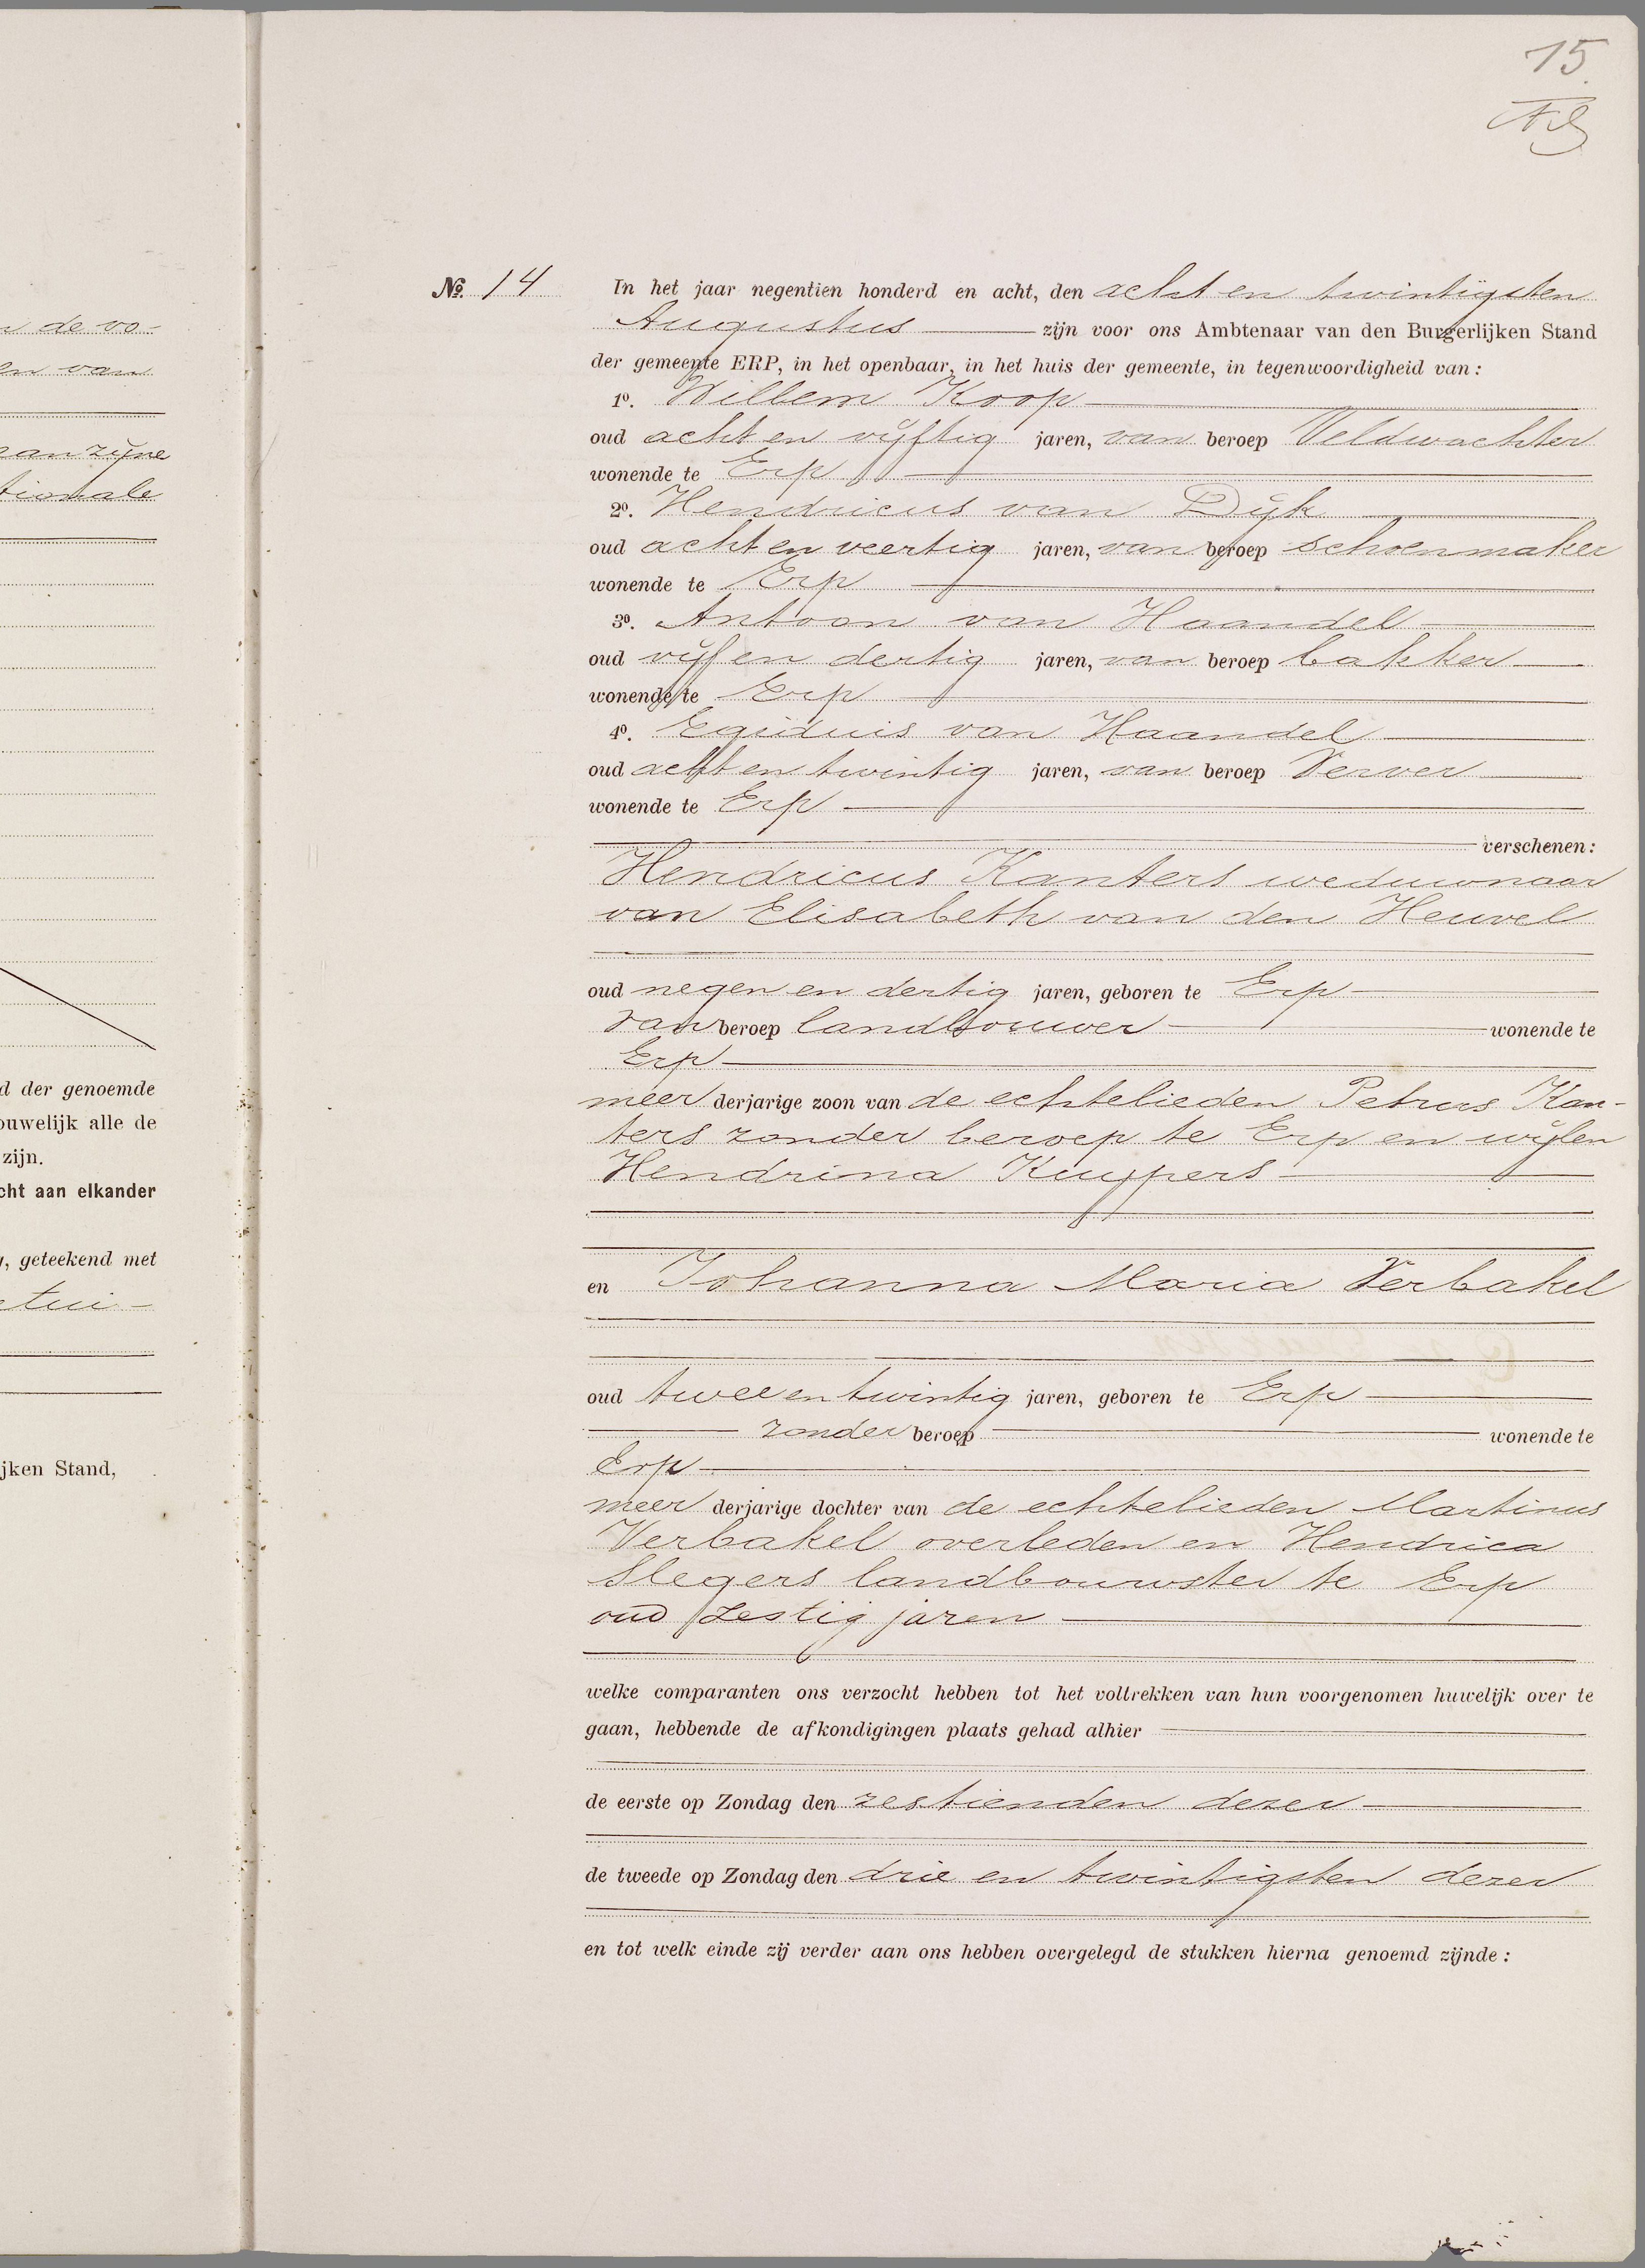 n de vo-
en van
van zijne
tionale
d der genoemde
ouwelijk alle de
zijn.
cht aan elkander
, geteekend met
etui-
jken Stand,
15.
No. 14
In het jaar negentien honderd en acht, den acht en twintigsten
Augustus zijn voor ons Ambtenaar van den Burgerlijken Stand
der gemeente ERP, in het openbaar, in het huis der gemeente, in tegenwoordigheid van:
1o. Willem Koop
oud acht en vijftig jaren, van beroep Veldwachter
wonende te Erp
2o. Hendricus van Dijk
oud acht en veertig jaren, van beroep schoenmaker
wonende te Erp
3o. Antoon van Haandel
oud vijf en dertig jaren, van beroep bakker
wonende te Erp
4o. Egiduis van Haandel
oud acht en twintig jaren, van beroep Verver
wonende te Erp
verschenen:
Hendricus Kanters weduwnaar
van Elisabeth van den Heuvel
oud negen en dertig jaren, geboren te Erp
van beroep landbouwer wonende te
Erp
meer derjarige zoon van de echtelieden Petrus Kan-
ters zonder beroep te Erp en wijlen
Hendrina Kuypers
en Johanna Maria Verbakel
oud twee en twintig jaren, geboren te Erp
zonder beroep wonende te
Erp
meer derjarige dochter van de echtelieden Martinus
Verbakel overleden en Hendrica
Slegers landbouwster te Erp
oud zestig jaren
welke comparanten ons verzocht hebben tot het voltrekken van hun voorgenomen huwelijk over te
gaan, hebbende de afkondigingen plaats gehad alhier
de eerste op Zondag den zestienden dezer
de tweede op Zondag den drie en twintigsten dezer
en tot welk einde zij verder aan ons hebben overgelegd de stukken hierna genoemd zijnde: